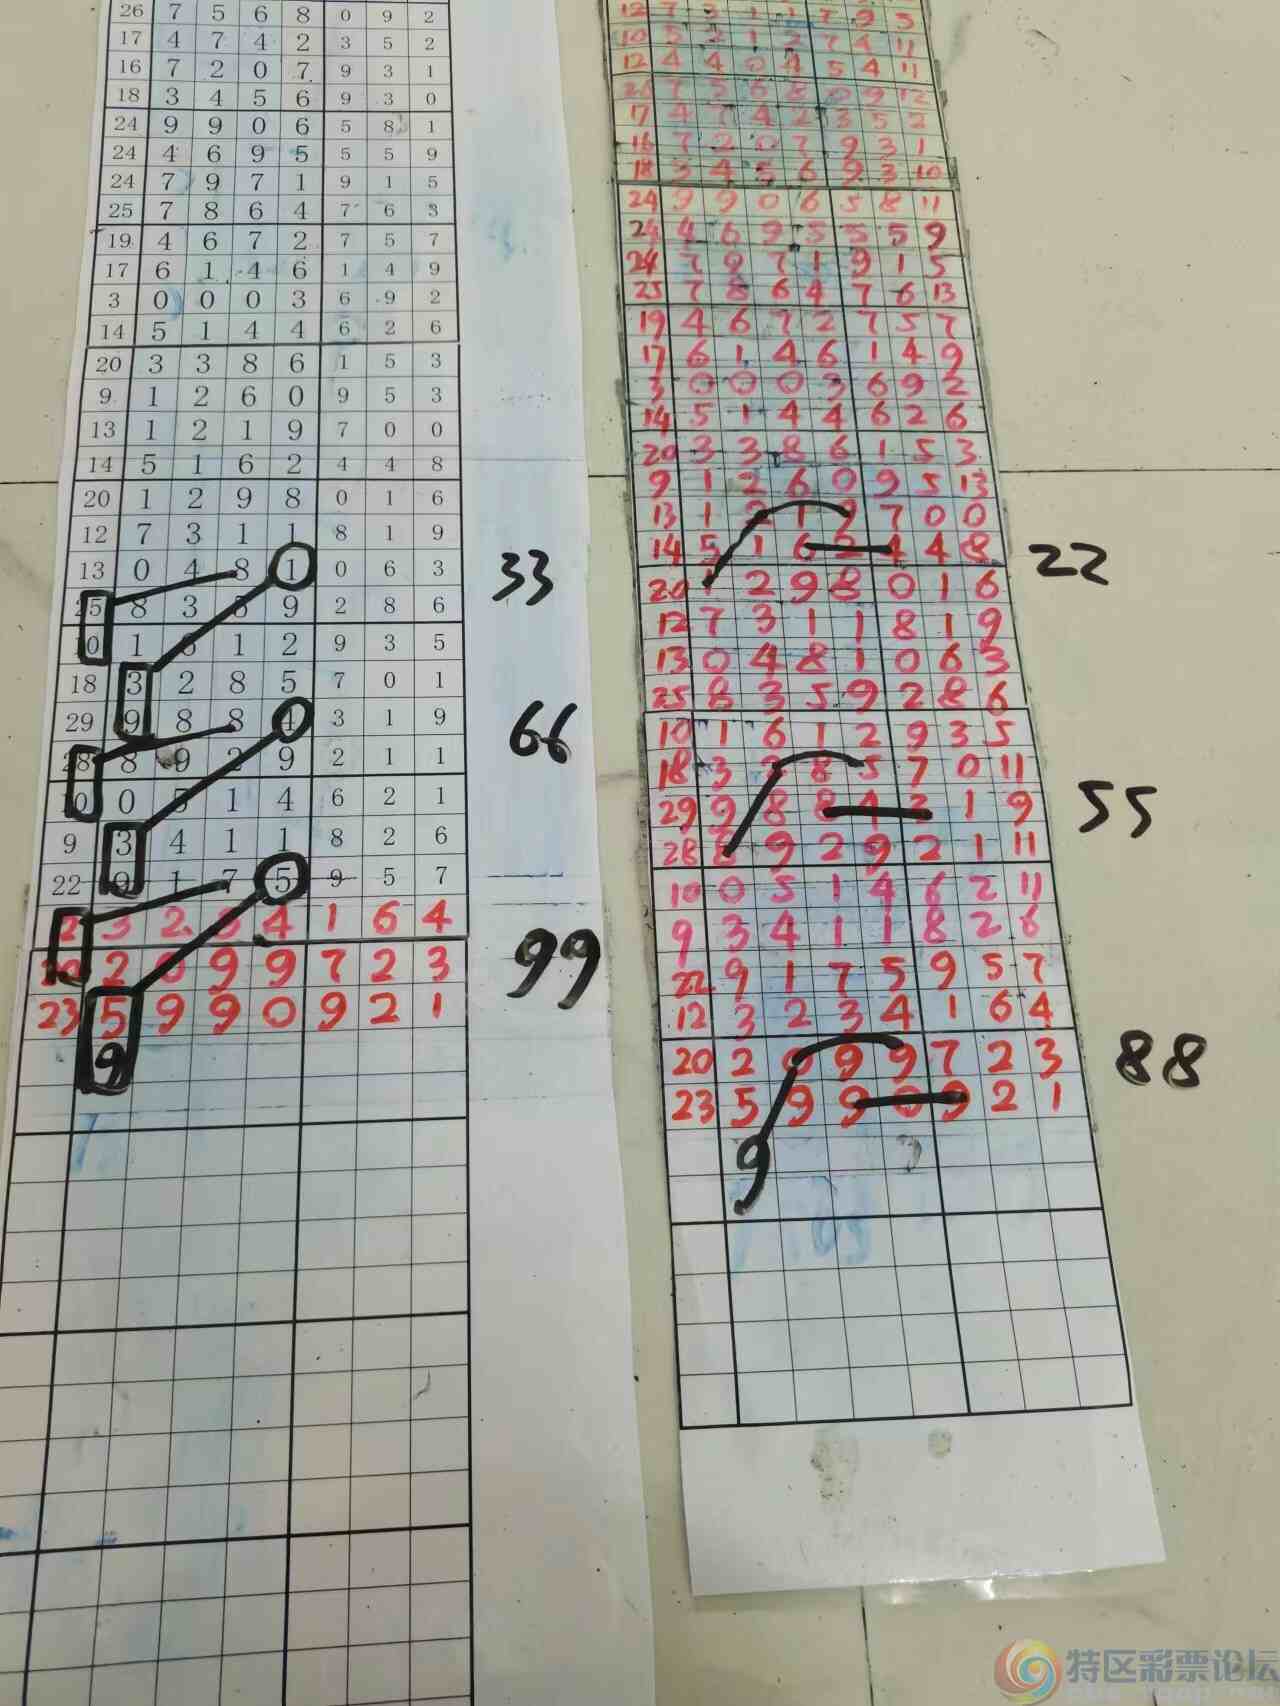 26 7 5 6 8 0 9 2
17 4 7 4 2 3 5 2
16 7 2 0 7 9 3 1
18 3 4 5 6 9 3 0
24 9 9 0 6 5 8 1
24 4 6 9 5 5 5 9
24 7 9 7 1 9 1 5
25 7 8 6 4 7 6 3
19 4 6 7 2 7 5 7
17 6 1 4 6 1 4 9
3 0 0 0 3 6 9 2
14 5 1 4 4 6 2 6
20 3 3 8 6 1 5 3
9 1 2 6 0 9 5 3
13 1 2 1 9 7 0 0
14 5 1 6 2 4 4 8
20 1 2 9 8 0 1 6
12 7 3 1 1 8 1 9
13 0 4 8 1 0 6 3
25 8 3 5 9 2 8 6
10 1 6 1 2 9 3 5
18 3 2 8 5 7 0 1
29 9 8 8 4 3 1 9
28 8 9 2 9 2 1 1
10 0 5 1 4 6 2 1
9 3 4 1 1 8 2 6
22 9 1 7 5 9 5 7
12 3 2 3 4 1 6 4
20 2 0 9 9 7 2 3
23 5 9 9 0 9 2 1
9
33
66
99
12 7 3 1 1 7 9 5
10 5 2 1 2 7 4 11
12 4 4 0 4 5 4 11
26 7 5 6 8 0 9 12
17 4 7 4 2 3 5 2
16 7 2 0 7 9 3 1
18 3 4 5 6 9 3 10
24 9 9 0 6 5 8 11
24 4 6 9 5 5 5 9
24 7 9 7 1 9 1 5
25 7 8 6 4 7 6 13
19 4 6 7 2 7 5 7
17 6 1 4 6 1 4 9
3 0 0 0 3 6 9 2
14 5 1 4 4 6 2 6
20 3 3 8 6 1 5 3
9 1 2 6 0 9 5 13
13 1 2 1 9 7 0 0
14 5 1 6 2 4 4 8
20 1 2 9 8 0 1 6
12 7 3 1 1 8 1 9
13 0 4 8 1 0 6 3
25 8 3 5 9 2 8 6
10 1 6 1 2 9 3 5
18 3 2 8 5 7 0 11
29 9 8 8 4 3 1 9
28 8 9 2 9 2 1 11
10 0 5 1 4 6 2 11
9 3 4 1 1 8 2 6
22 9 1 7 5 9 5 7
12 3 2 3 4 1 6 4
20 2 0 9 9 7 2 3
23 5 9 9 0 9 2 1
9
22
55
88
特区彩票论坛